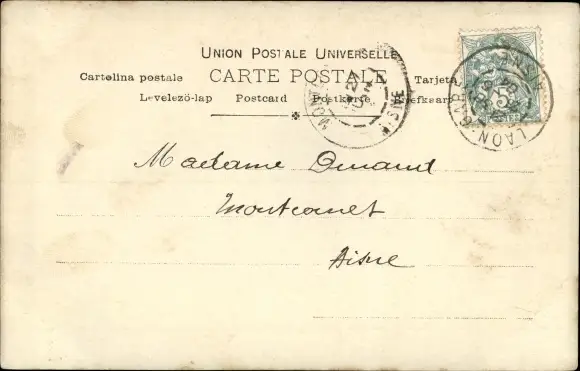 UNION POSTALE UNIVERSELLE
Cartolina postale CARTE POSTALE Tarjeta
Levelező-lap Postcard Postkarte
LAON-GARE
5
27
AISNE
Madame Durand
Montcornet
Aisne